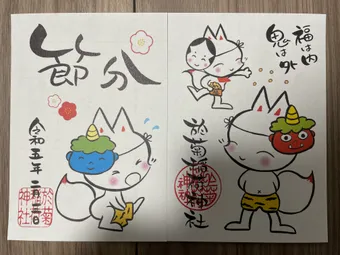 福は内
鬼は外
於菊稲荷神社
於菊稲荷神社
節分
令和五年二月三日
於菊
神社